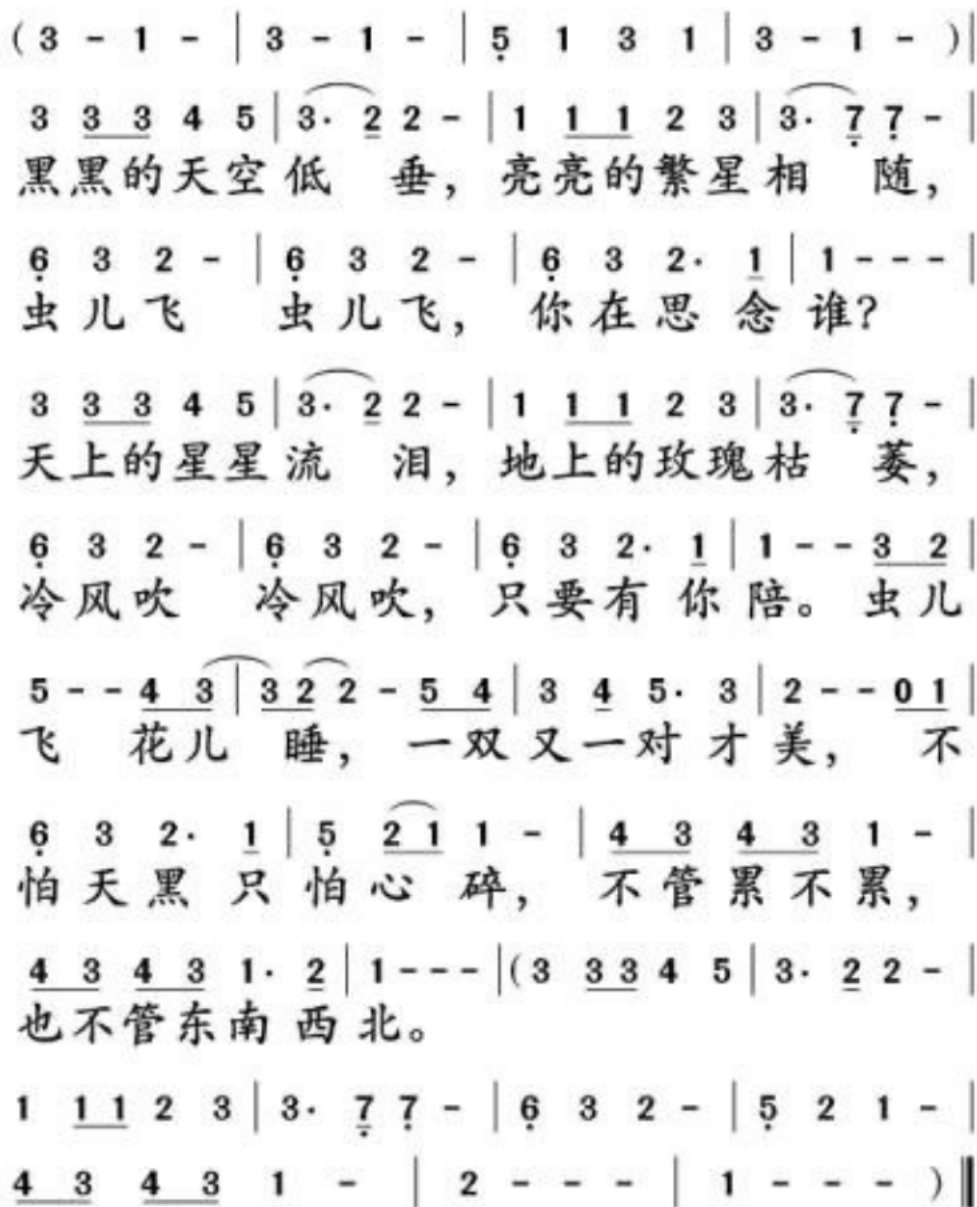 ( 3 - 1 - | 3 - 1 - | 5̣ 1 3 1 | 3 - 1 - )|
3 3 3 4 5 | 3· 2 2 - | 1 1 1 2 3 | 3· 7̣ 7̣ - |
黑黑的天空低 垂，亮亮的繁星相 随，
6̣ 3 2 - | 6̣ 3 2 - | 6̣ 3 2· 1 | 1 - - - |
虫儿飞 虫儿飞，你在思念谁？
3 3 3 4 5 | 3· 2 2 - | 1 1 1 2 3 | 3· 7̣ 7̣ - |
天上的星星流 泪，地上的玫瑰枯 萎，
6̣ 3 2 - | 6̣ 3 2 - | 6̣ 3 2· 1 | 1 - - 3 2 |
冷风吹 冷风吹，只要有你陪。虫儿
5 - - 4 3 | 3 2 2 - 5 4 | 3 4 5· 3 | 2 - - 0 1 |
飞 花儿 睡，一双又一对才美，不
6̣ 3 2· 1 | 5̣ 2 1 1 - | 4 3 4 3 1 - |
怕天黑只怕心 碎，不管累不累，
4 3 4 3 1· 2 | 1 - - - |( 3 3 3 4 5 | 3· 2 2 - |
也不管东南西北。
1 1 1 2 3 | 3· 7̣ 7̣ - | 6̣ 3 2 - | 5̣ 2 1 - |
4 3 4 3 1 - | 2 - - - | 1 - - - )‖